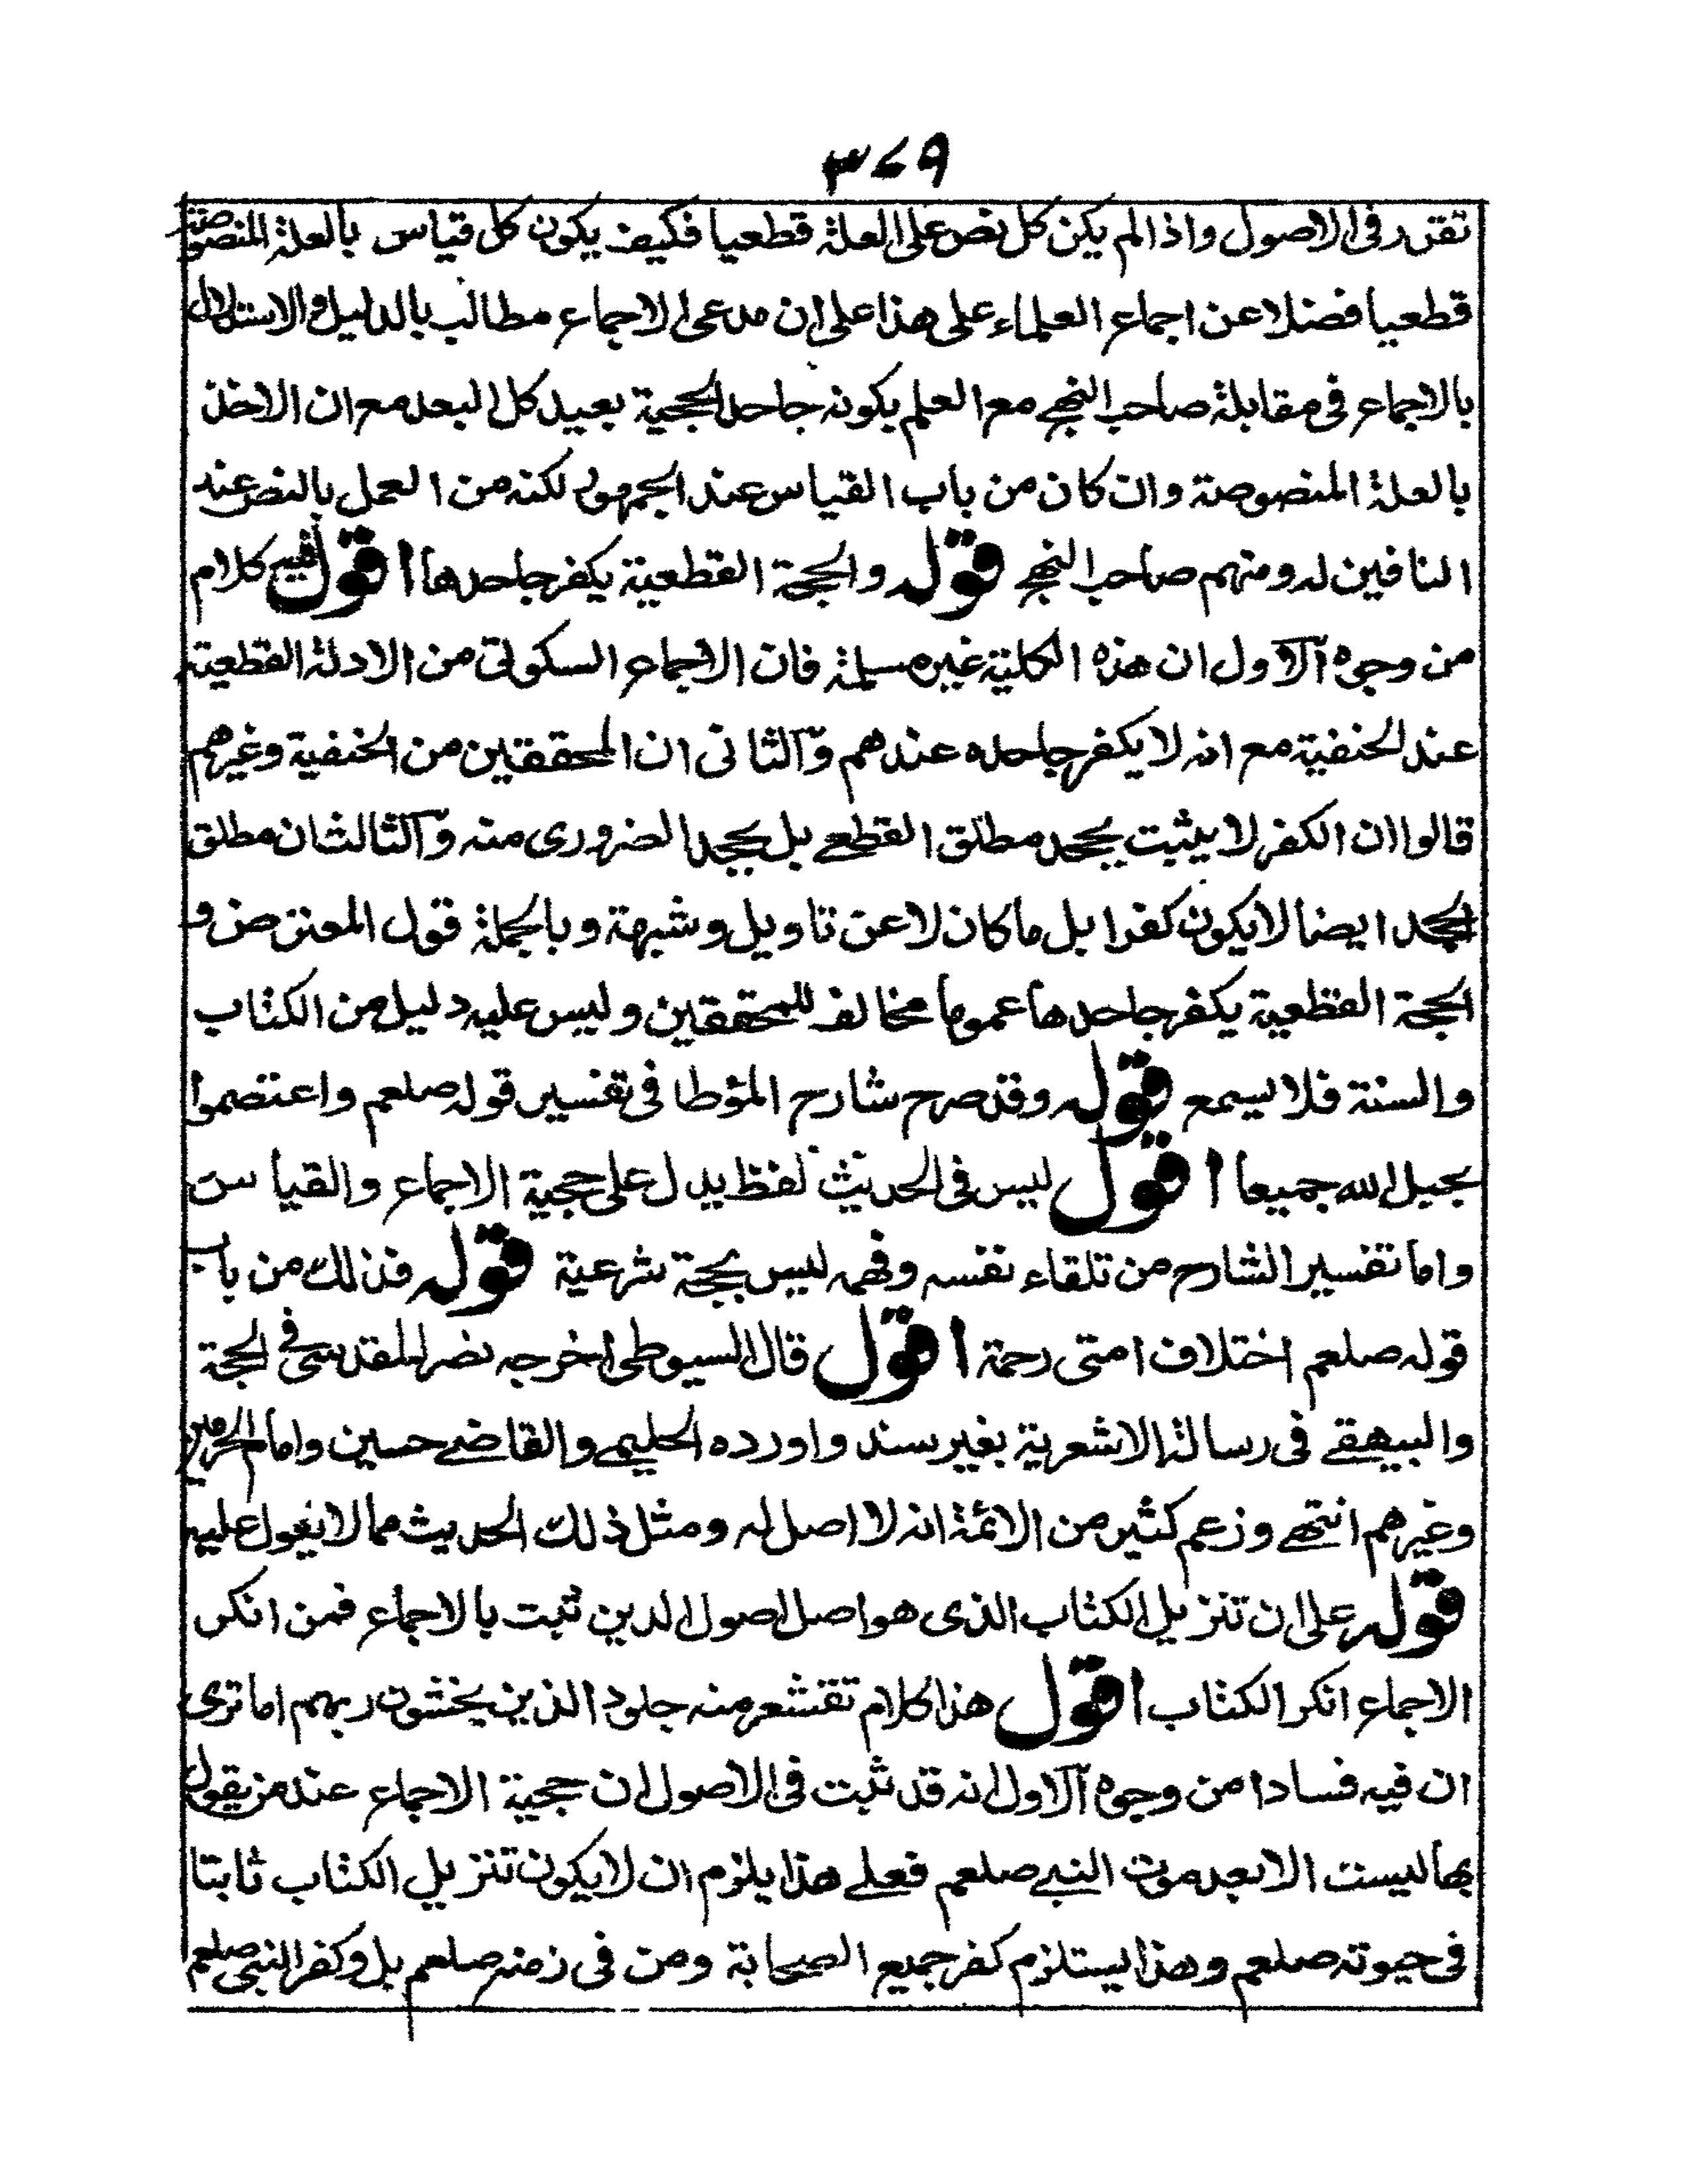 ۳۷۹
تقرر فی الاصول واذا لم یکن کل نص علی العلة قطعیا فکیف یکون کل قیاس بالعلة المنصوصة
قطعیا فضلا عن اجماع العلماء علی هذا علی ان مدعی الاجماع مطالب بالدلیل والاستدلال
بالاجماع فی مقابلة صاحب النهج مع العلم بکونه جاحد الحجیة بعید کل البعد مع ان الاخذ
بالعلة المنصوصة وان کان من باب القیاس عند الجمهور لکنه من العمل بالنص عند
النافین له ومنهم صاحب النهج قوله والحجة القطعیة یکفر جاحدها اقول فیه کلام
من وجوه الاول ان هذه الکلیة غیر مسلمة فان الاجماع السکوتی من الادلة القطعیة
عند الحنفیة مع انه لا یکفر جاحده عندهم والثانی ان المحققین من الحنفیة وغیرهم
قالوا ان الکفر لا یثبت بجحد مطلق القطعے بل بجحد الضروری منه والثالث ان مطلق
الجحد ایضا لا یکون کفرا بل ما کان لا عن تاویل وشبهة وبالجملة قول المعترض و
الحجة القطعیة یکفر جاحدها عموما مخالف للمحققین ولیس علیه دلیل من الکتاب
والسنة فلا یسمع قوله وقد صرح شارح المؤطا فی تفسیر قوله صلعم واعتصموا
بحبل الله جمیعا اقول لیس فی الحدیث لفظ یدل علی حجیة الاجماع والقیاس
واما تفسیر الشارح من تلقاء نفسه وفهمه لیس بحجة شرعیة قوله فذلك من باب
قوله صلعم اختلاف امتی رحمة اقول قال السیوطی اخرجه نصر المقدسی فی الحجة
والبیهقے فی رسالة الاشعریة بغیر سند واورده الحلیمے والقاضے حسین وامام الحرمین
وغیرهم انتهے وزعم کثیر من الائمة انه لا اصل له ومثل ذلك الحدیث مما لا یعول علیه
قوله علی ان تنزیل الکتاب الذی هو اصل اصول الدین ثبت بالاجماع فمن انکر
الاجماع انکر الکتاب اقول هذا کلام تقشعر منه جلود الذین یخشون ربهم اما تری
ان فیه فسادا من وجوه الاول انه قد ثبت فی الاصول ان حجیة الاجماع عند من یقول
بها لیست الا بعد موت النبے صلعم فعلے هذا یلزم ان لا یکون تنزیل الکتاب ثابتا
فی حیوته صلعم وهذا یستلزم کفر جمیع الصحابة ومن فی زمنه صلعم بل وکفر النبی صلعم